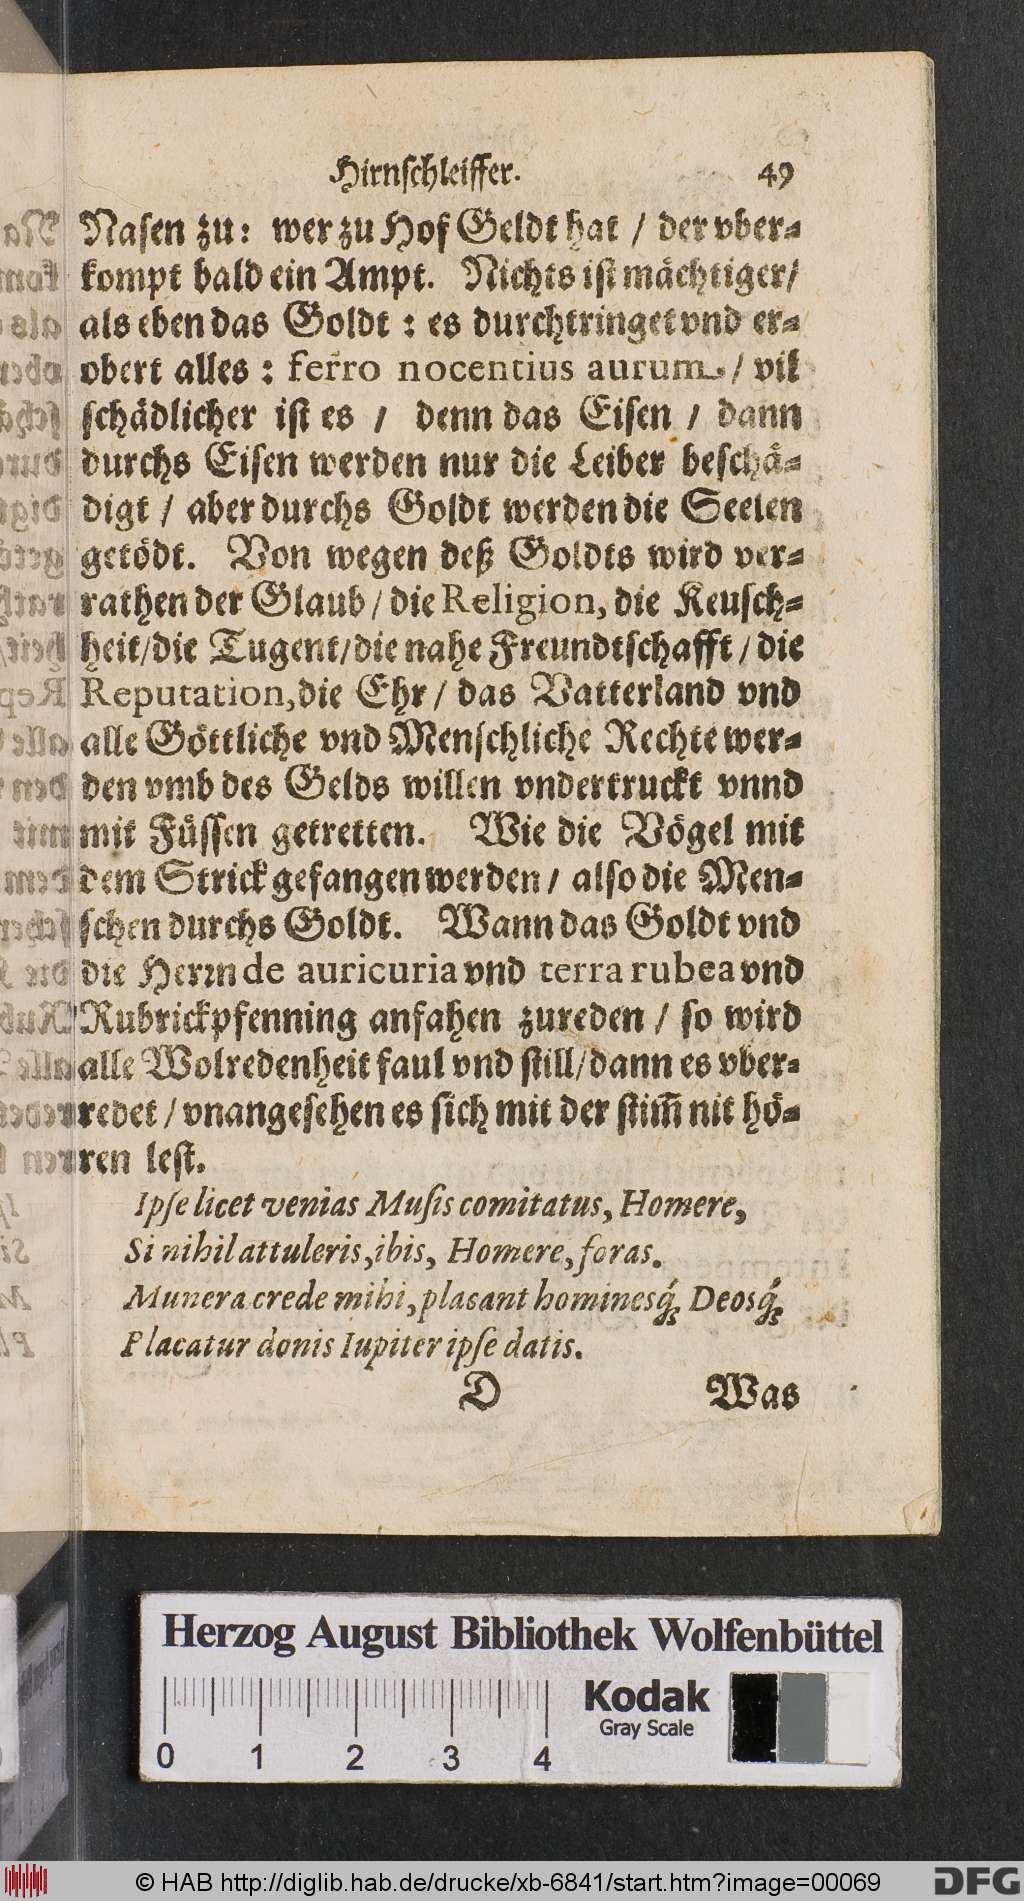 Hirnschleiffer. 49
Nasen zu: wer zu Hof Geldt hat / der vber-
kompt bald ein Ampt. Nichts ist mächtiger/
als eben das Goldt : es durchtringet vnd er-
obert alles : ferro nocentius aurum. / vil
schädlicher ist es / denn das Eisen / dann
durchs Eisen werden nur die Leiber beschä-
digt / aber durchs Goldt werden die Seelen
getödt. Von wegen deß Goldts wird ver-
rathen der Glaub / die Religion, die Keusch-
heit/die Tugent/die nahe Freundtschafft / die
Reputation, die Ehr / das Vatterland vnd
alle Göttliche vnd Menschliche Rechte wer-
den vmb des Gelds willen vndertruckt vnnd
mit Füssen getretten. Wie die Vögel mit
dem Strick gefangen werden / also die Men-
schen durchs Goldt. Wann das Goldt vnd
die Herrn de auricuria vnd terra rubea vnd
Rubrickpfenning anfahen zureden / so wird
alle Wolredenheit faul vnd still/dann es vber-
redet / vnangesehen es sich mit der stim̃ nit hö-
ren lest.
Ipse licet venias Musis comitatus, Homere,
Si nihil attuleris, ibis, Homere, foras.
Munera crede mihi, placant hominesq́; Deosq́;
Placatur donis Iupiter ipse datis.
D Was
Herzog August Bibliothek Wolfenbüttel
Kodak
Gray Scale
0 1 2 3 4
© HAB http://diglib.hab.de/drucke/xb-6841/start.htm?image=00069
DFG